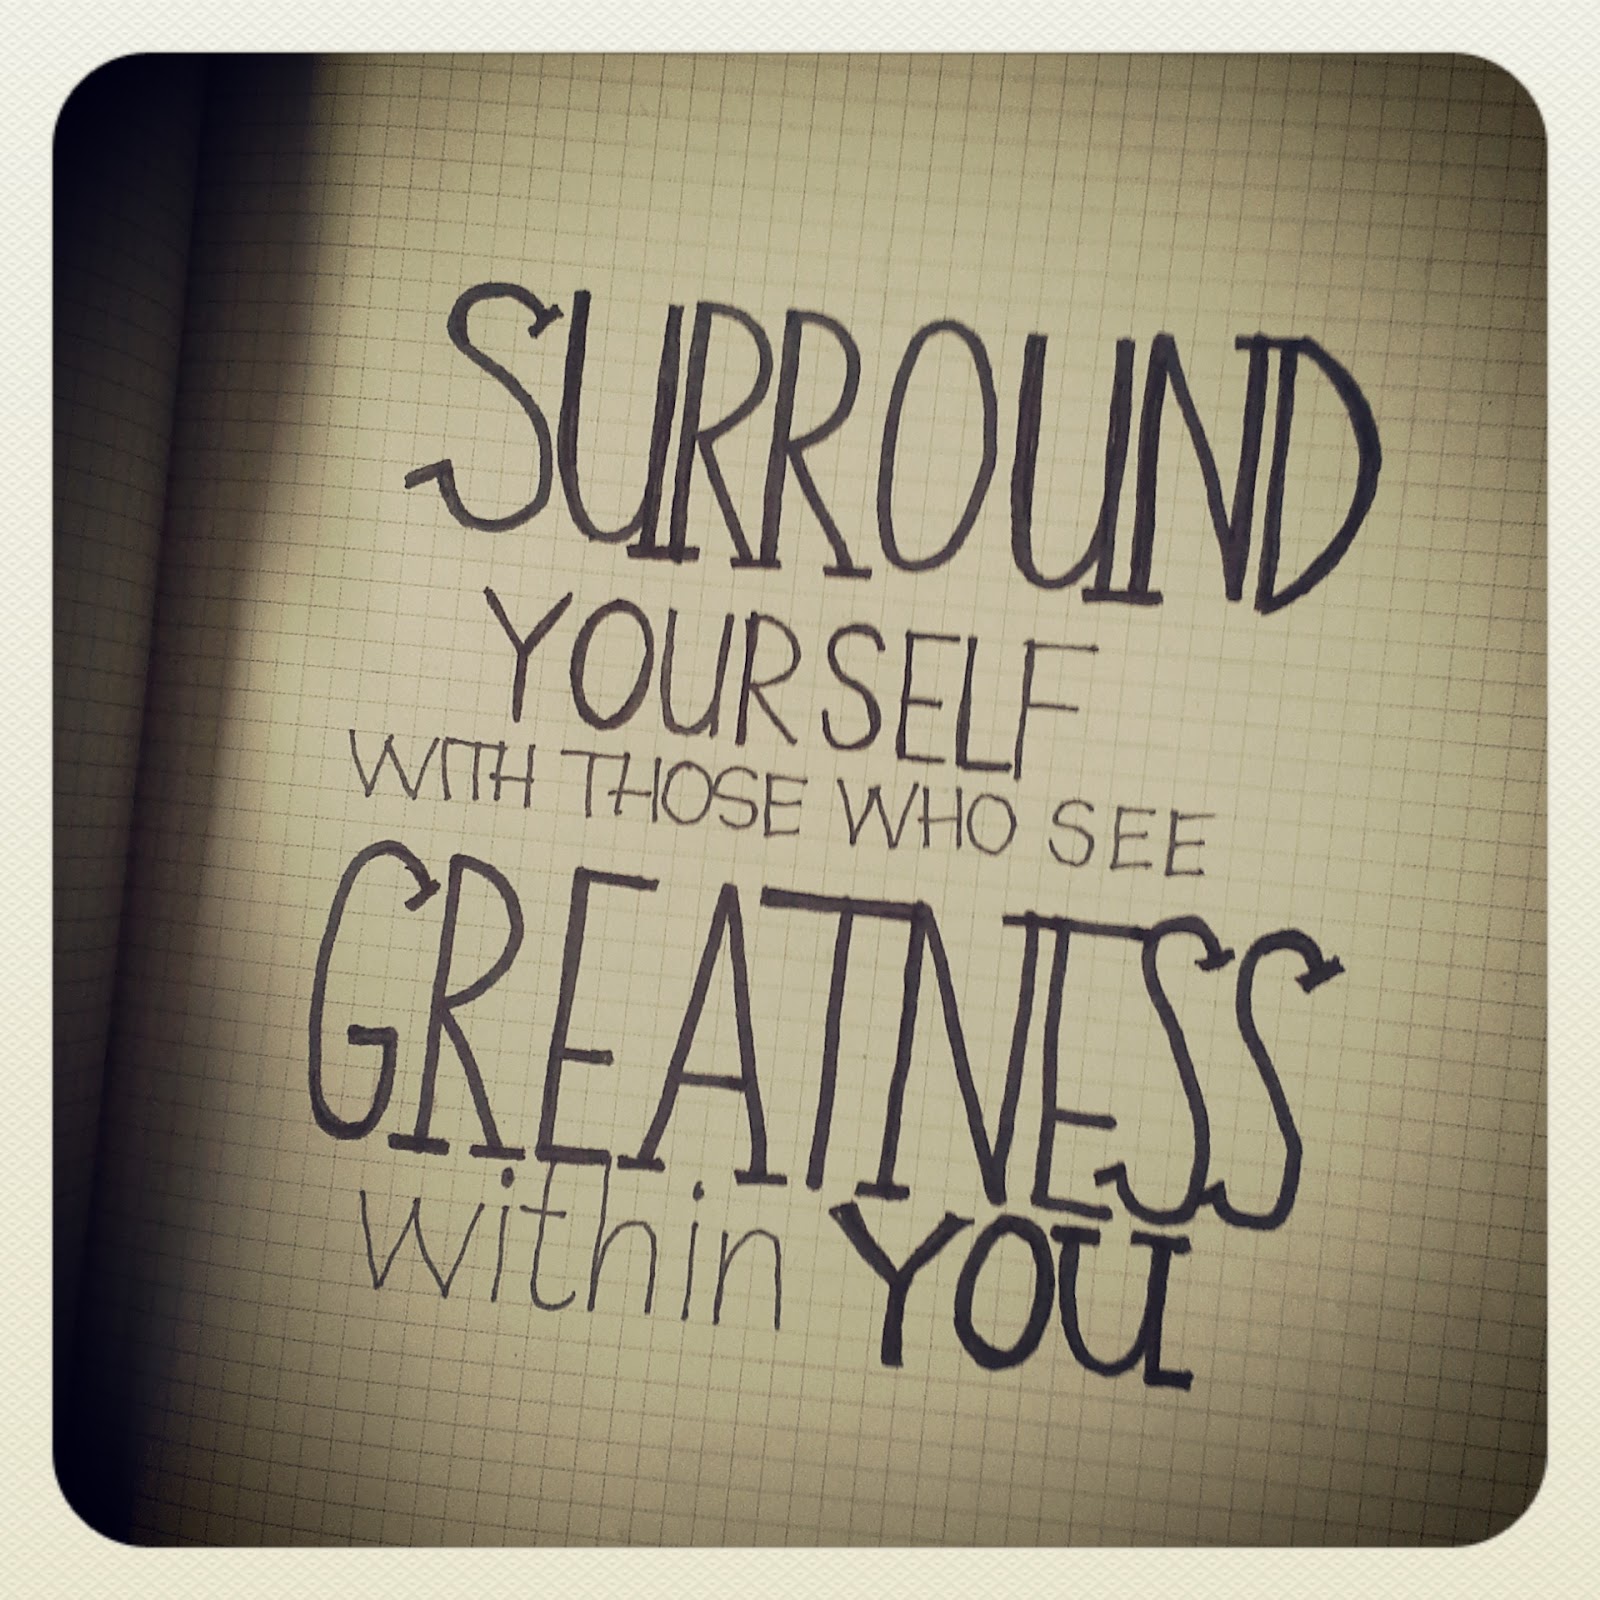 SURROUND
YOURSELF
WITH THOSE WHO SEE
GREATNESS
within YOU